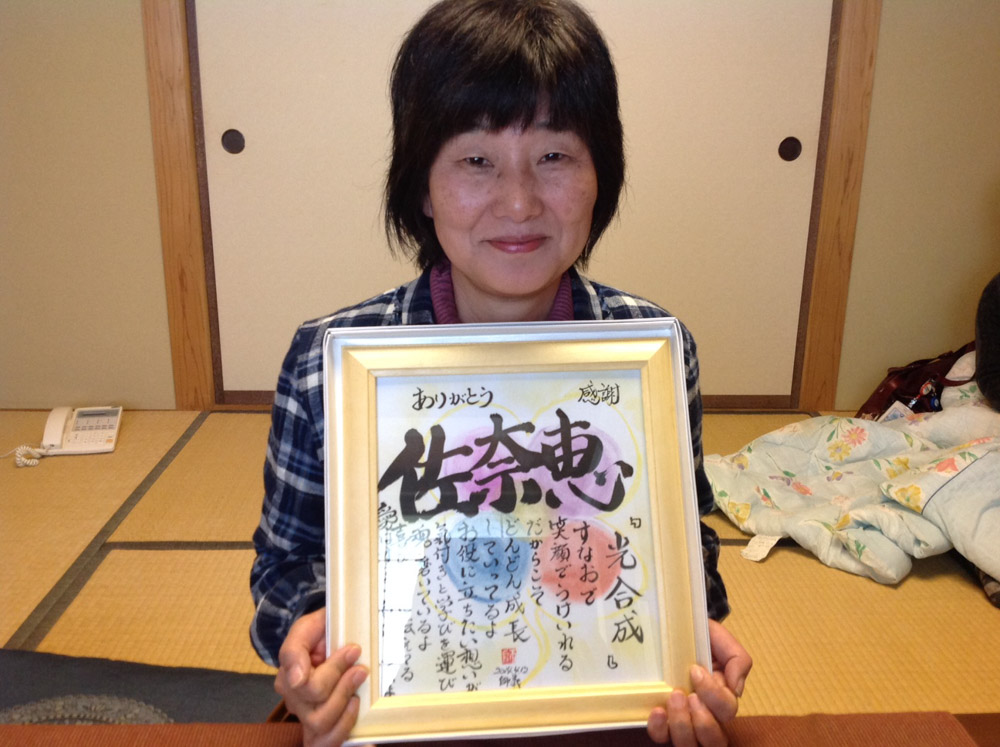 ありがとう
感謝
佐奈恵
「光合成」
すなおで
笑顔でうけいれる
だからこそ
どんどん成長
していってるよ
お役に立ちたい想いが
気付きと学びを運び
魂。磨いているよ